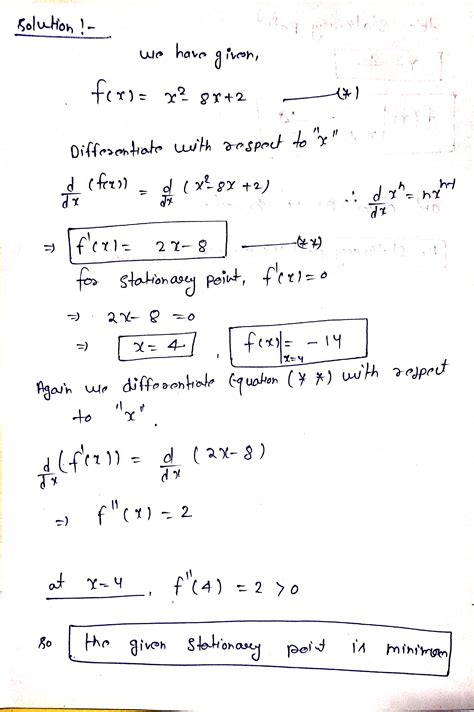 Solution :-
we have given,
f(x) = x² - 8x + 2 ——— (*)
Differentiate with respect to "x"
d/dx (f(x)) = d/dx (x² - 8x + 2) ∴ d/dx xⁿ = nxⁿ⁻¹
⇒ f'(x) = 2x - 8 ——— (**)
for stationary point, f'(x) = 0
⇒ 2x - 8 = 0
⇒ x = 4 , f(x)|x=4 = - 14
Again we differentiate Equation (**) with respect
to "x".
d/dx (f'(x)) = d/dx (2x - 8)
⇒ f''(x) = 2
at x = 4 , f''(4) = 2 > 0
so the given stationary point is minimum